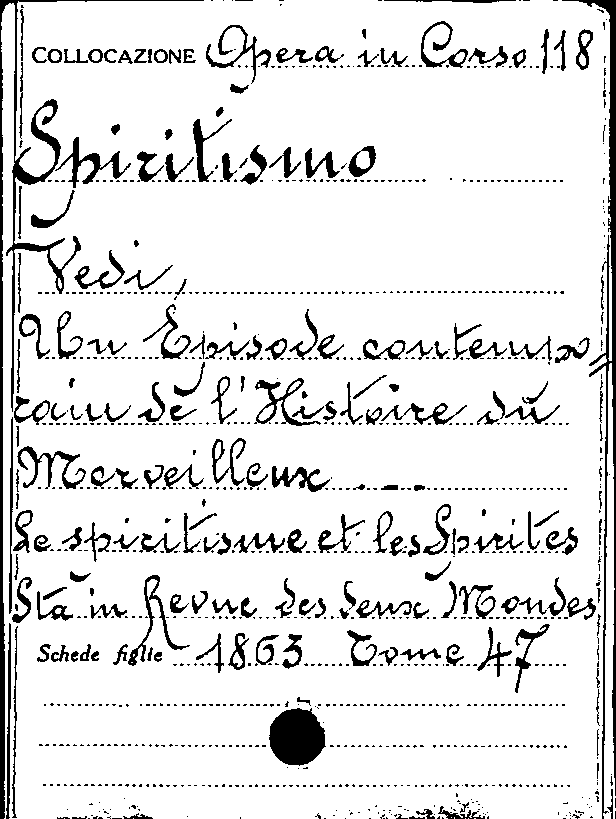 COLLOCAZIONE Opera in Corso 118
Spiritismo
Vedi,
Un Episode contempo=
rain de l'Histoire du
Merveilleux ...
Le spiritisme et les Spirites
Sta in Revue des deux Mondes
Schede figlie 1863 Tome 47